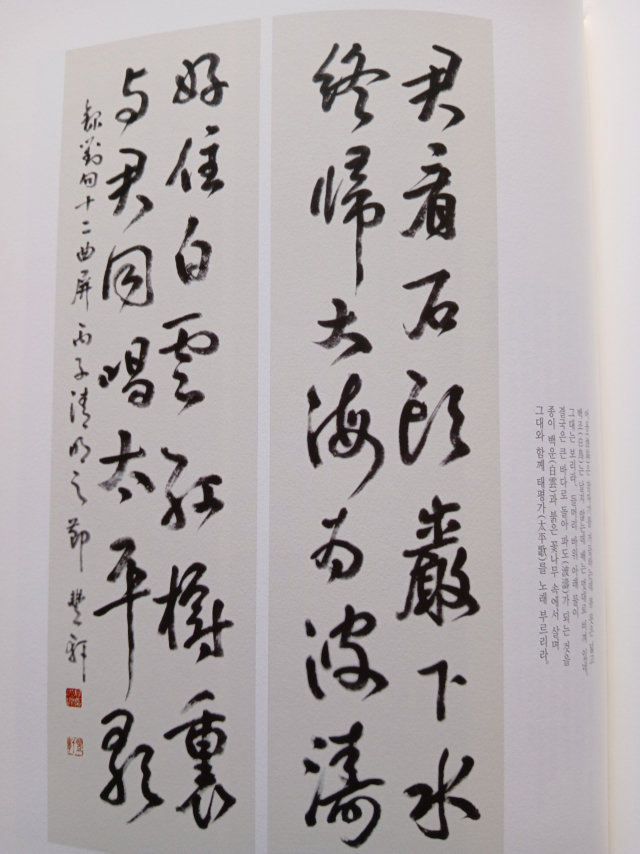 君看石頭巖下水
終歸大海為波濤
好住白雲紅樹裏
与君同唱太平歌
錄對句十二曲屏 丙子清明之節 豊軒
백조(白鳥)는
그대는 보리라, 돌머리 바위 아래 물이
결국은 큰 바다로 돌아 파도(波濤)가 되는 것을
종이 백운(白雲)과 붉은 꽃나무 속에서 살며
그대와 함께 태평가(太平歌)를 노래 부르리라.